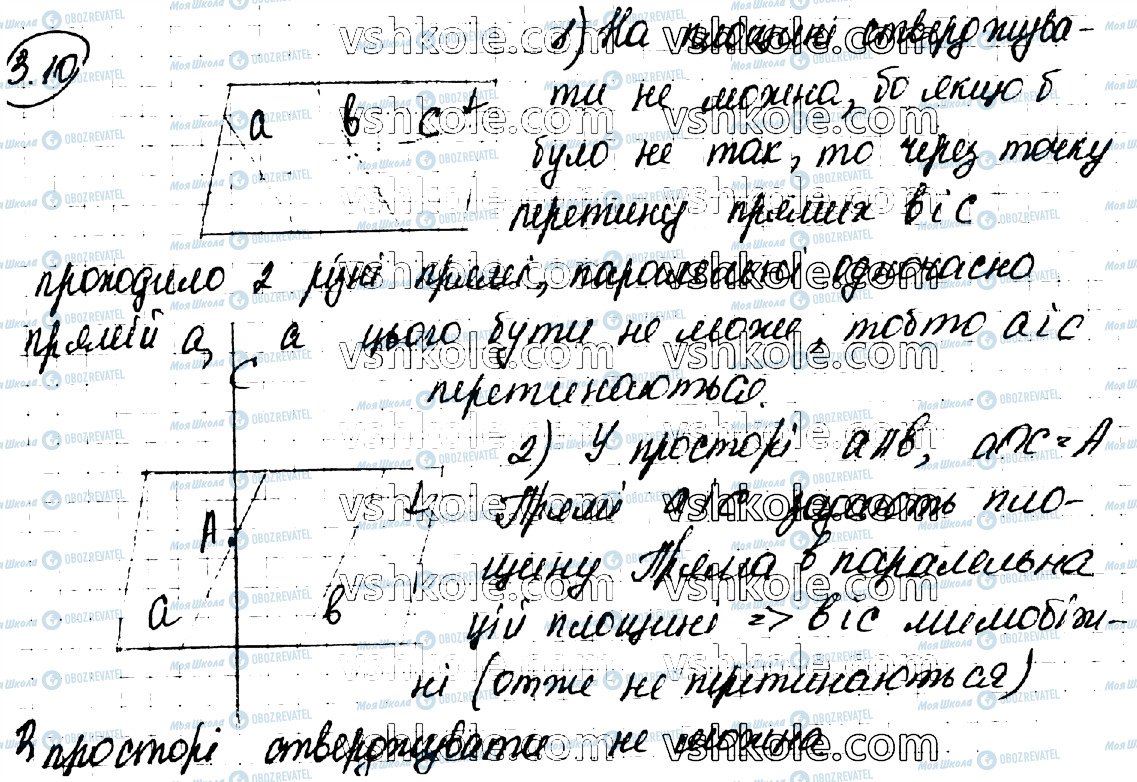 3.10
1) На площині стверджува-
ти не можна, бо якщо б
a b c α
було не так, то через точку
перетину прямих b і c
проходило 2 різні прямі, паралельні одночасно
прямій a, а цього бути не може, тобто a і c
перетинаються.
c
2) У просторі a∥b, a∩c=A
Прямі a і c задають пло-
A
щину Пряма b паралельна
a b
цій площині => b і c мимобіж-
ні (отже не перетинаються)
В просторі стверджувати не можна